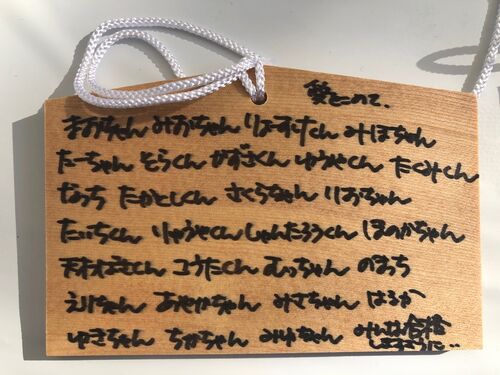 愛をこめて、
まおちゃん みおちゃん りょうすけくん みほちゃん
たーちゃん そらくん かずさくん ゆうやくん たくみくん
なっち たかとしくん さくらちゃん りおちゃん
たいちくん りゅうやくん しゅんたろうくん ほのかちゃん
こうたくん むっちゃん のおち
えりちゃん あやかちゃん みさちゃん はるか
ゆきちゃん ちかちゃん みゆちゃん みんな合格
しますように…